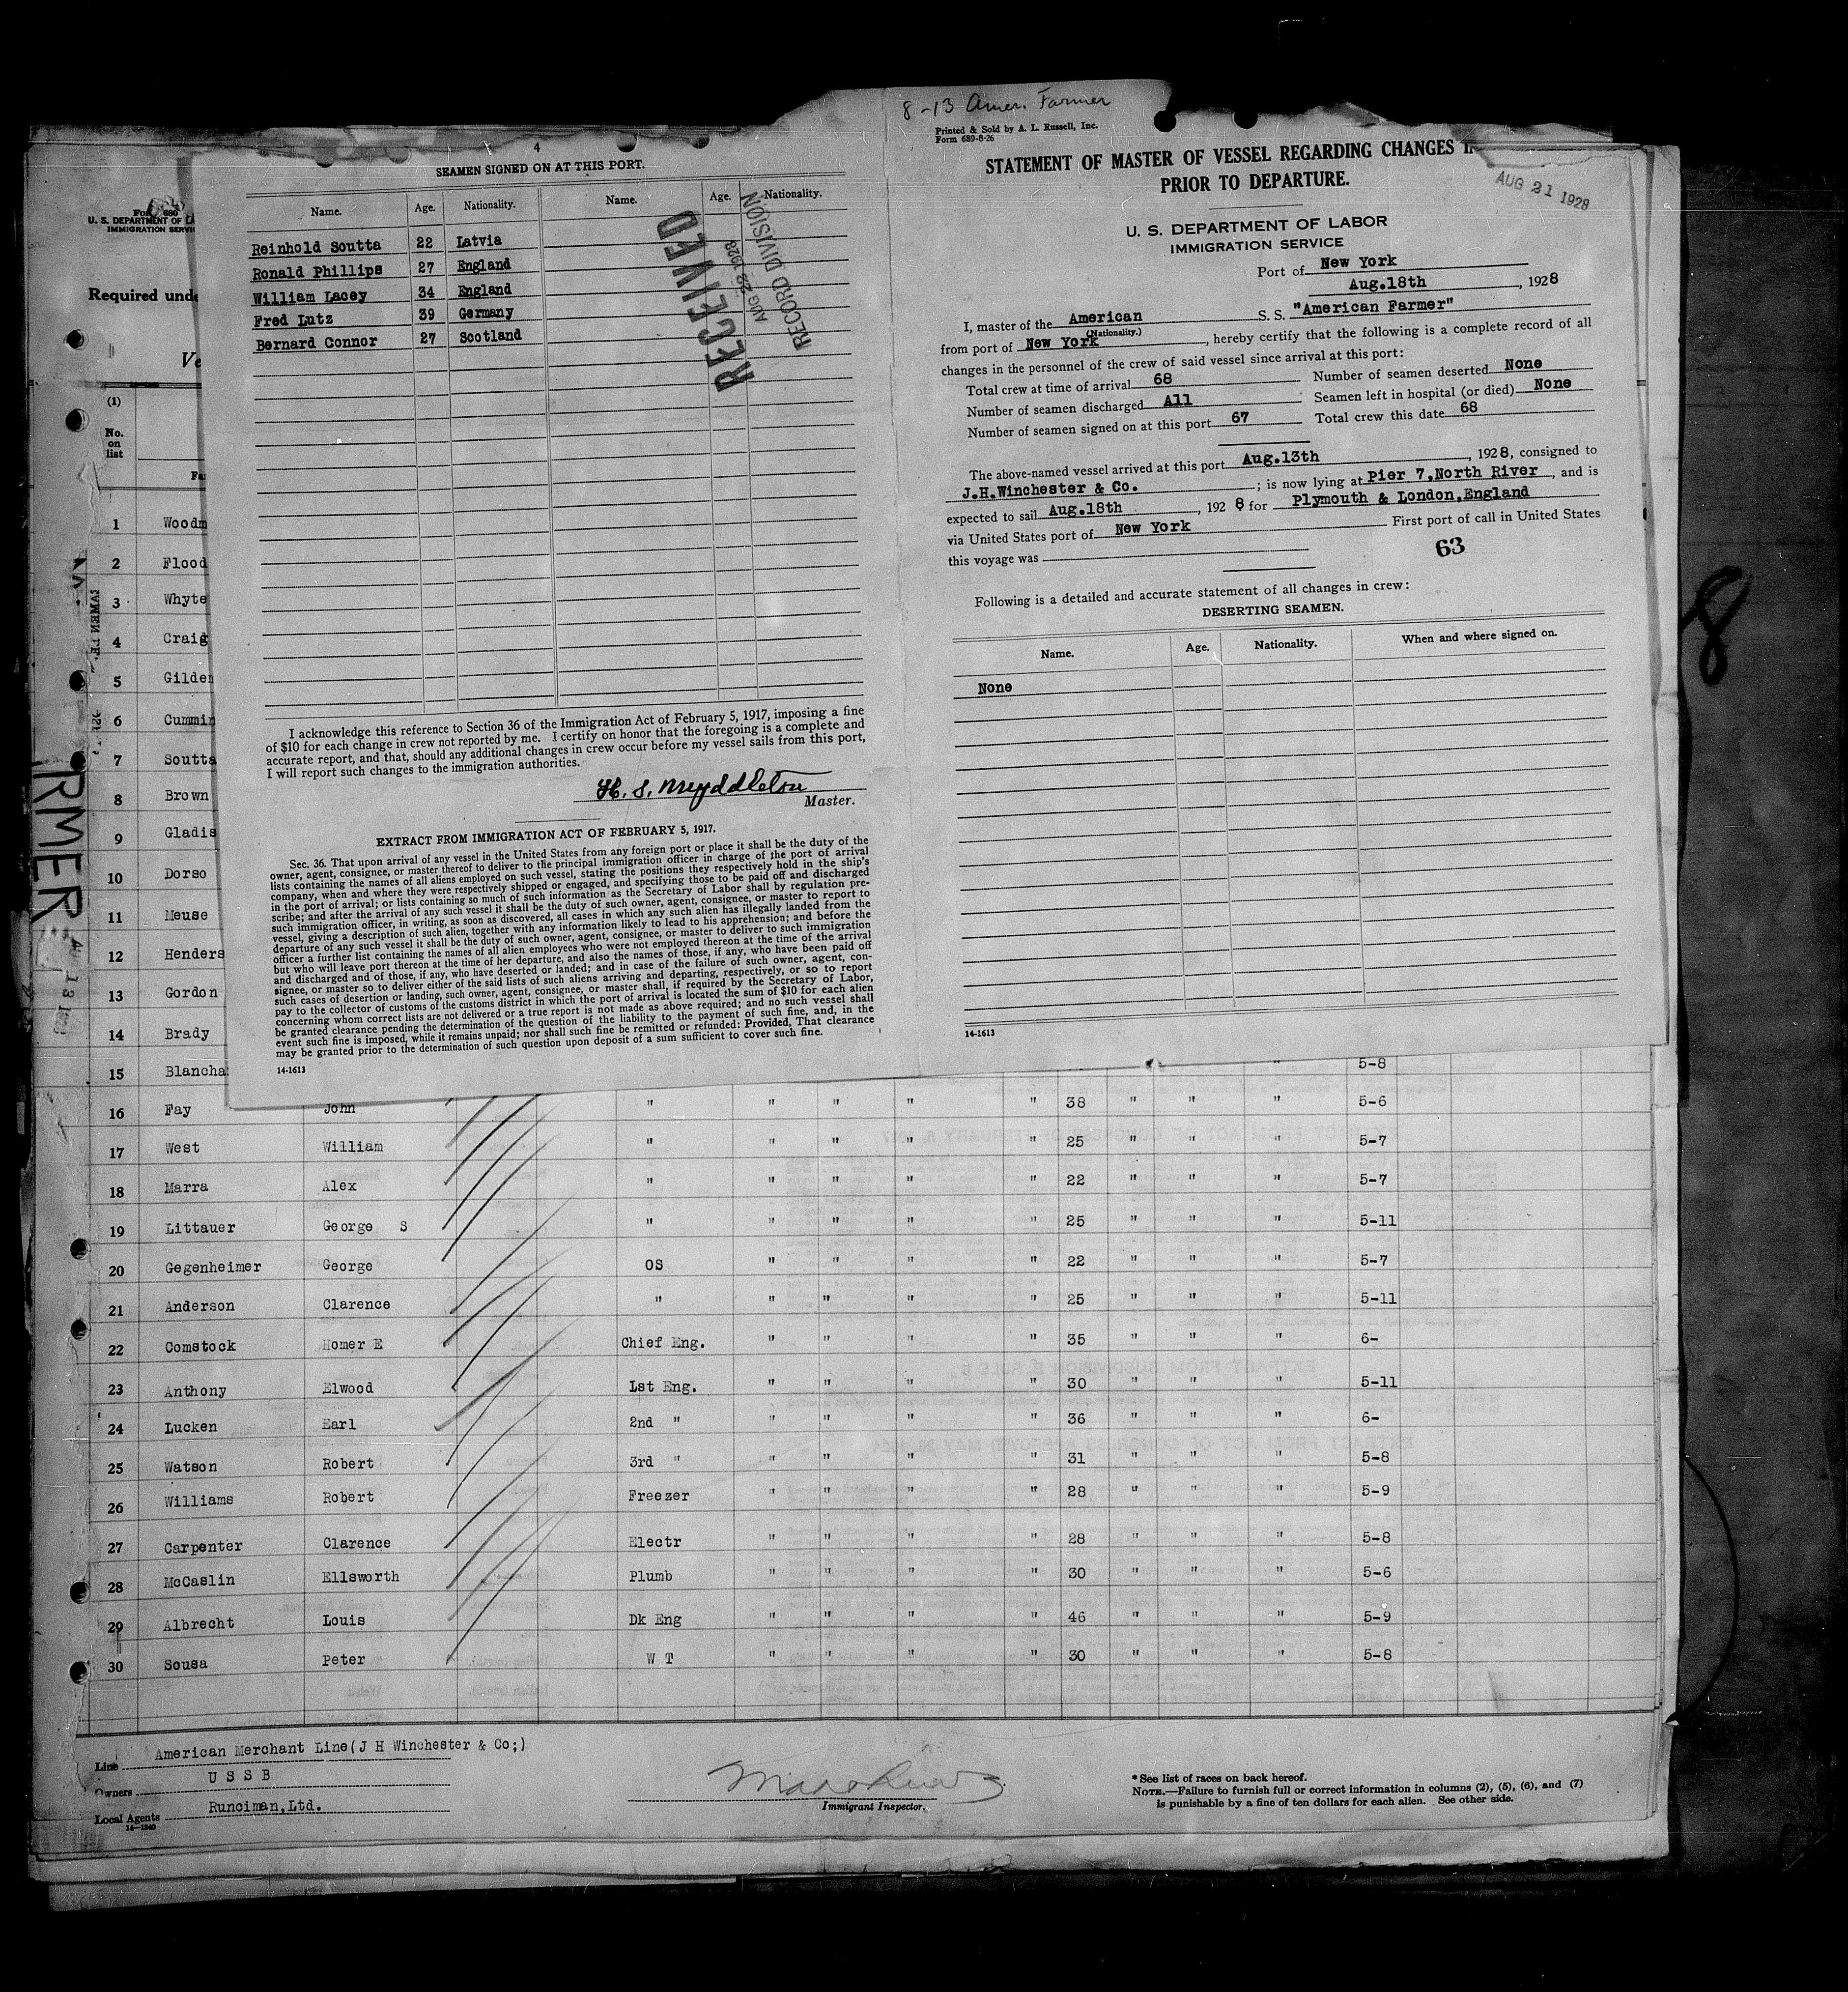 8-13 Amer. Farmer
Printed & Sold by A. L. Russell, Inc.
Form 689-8-26
STATEMENT OF MASTER OF VESSEL REGARDING CHANGES
PRIOR TO DEPARTURE.
AUG 21 1928
U. S. DEPARTMENT OF LABOR
IMMIGRATION SERVICE
Port of New York
Aug.18th, 1928
I, master of the American S. S. "American Farmer"
(Nationality.)
from port of New York, hereby certify that the following is a complete record of all
changes in the personnel of the crew of said vessel since arrival at this port:
Total crew at time of arrival 68 Number of seamen deserted None
Number of seamen discharged All Seamen left in hospital (or died) None
Number of seamen signed on at this port 67 Total crew this date 68
The above-named vessel arrived at this port Aug.13th, 1928, consigned to
J.H.Winchester & Co.; is now lying at Pier 7,North River, and is
expected to sail Aug.18th, 1928 for Plymouth & London,England
via United States port of New York First port of call in United States
this voyage was
63
Following is a detailed and accurate statement of all changes in crew:
DESERTING SEAMEN.
Name. Age. Nationality. When and where signed on.
None
14-1613
4
SEAMEN SIGNED ON AT THIS PORT.
Name. Age. Nationality. Name. Age. Nationality.
Reinhold Soutta 22 Latvia
Ronald Phillips 27 England
William Lacey 34 England
Fred Lutz 39 Germany
Bernard Connor 27 Scotland
RECEIVED
AUG 22 1928
RECORD DIVISION
I acknowledge this reference to Section 36 of the Immigration Act of February 5, 1917, imposing a fine
of $10 for each change in crew not reported by me. I certify on honor that the foregoing is a complete and
accurate report, and that, should any additional changes in crew occur before my vessel sails from this port,
I will report such changes to the immigration authorities.
H. S. Myddleton
Master.
EXTRACT FROM IMMIGRATION ACT OF FEBRUARY 5, 1917.
Sec. 36. That upon arrival of any vessel in the United States from any foreign port or place it shall be the duty of the
owner, agent, consignee, or master thereof to deliver to the principal immigration officer in charge of the port of arrival
lists containing the names of all aliens employed on such vessel, stating the positions they respectively hold in the ship's
company, when and where they were respectively shipped or engaged, and specifying those to be paid off and discharged
in the port of arrival; or lists containing so much of such information as the Secretary of Labor shall by regulation pre-
scribe; and after the arrival of any such vessel it shall be the duty of such owner, agent, consignee, or master to report to
such immigration officer, in writing, as soon as discovered, all cases in which any such alien has illegally landed from the
vessel, giving a description of such alien, together with any information likely to lead to his apprehension; and before the
departure of any such vessel it shall be the duty of such owner, agent, consignee, or master to deliver to such immigration
officer a further list containing the names of all alien employees who were not employed thereon at the time of the arrival
but who will leave port thereon at the time of her departure, and also the names of those, if any, who have been paid off
and discharged and of those, if any, who have deserted or landed; and in case of the failure of such owner, agent, con-
signee, or master so to deliver either of the said lists of such aliens arriving and departing, respectively, or so to report
such cases of desertion or landing, such owner, agent, consignee, or master shall, if required by the Secretary of Labor,
pay to the collector of customs of the customs district in which the port of arrival is located the sum of $10 for each alien
concerning whom correct lists are not delivered or a true report is not made as above required; and no such vessel shall
be granted clearance pending the determination of the question of the liability to the payment of such fine, and, in the
event such fine is imposed, while it remains unpaid; nor shall such fine be remitted or refunded: Provided, That clearance
may be granted prior to the determination of such question upon deposit of a sum sufficient to cover such fine.
14-1613
U. S. DEPARTMENT OF
IMMIGRATION SERV
Required und
Ve
(1)
No.
on
list
Fa
RMER
8
1 Woodm
2 Flood
3 Whyte
4 Craig
5 Gilder
6 Cummin
7 Soutta
8 Brown
9 Gladis
10 Dorso
11 Meuse
12 Henders
13 Gordon
14 Brady
15 Blancha " 5-8
16 Fay John " " " " " 38 " " " 5-6
17 West William " " " " " 25 " " " 5-7
18 Marra Alex " " " " " 22 " " " 5-7
19 Littauer George S " " " " " 25 " " " 5-11
20 Gegenheimer George OS " " " " 22 " " " 5-7
21 Anderson Clarence " " " " " 25 " " " 5-11
22 Comstock Homer E Chief Eng. " " " " 35 " " " 6-
23 Anthony Elwood 1st Eng. " " " " 30 " " " 5-11
24 Lucken Earl 2nd " " " " " 36 " " " 6-
25 Watson Robert 3rd " " " " " 31 " " " 5-8
26 Williams Robert Freezer " " " " 28 " " " 5-9
27 Carpenter Clarence Electr " " " " 28 " " " 5-8
28 McCaslin Ellsworth Plumb " " " " 30 " " " 5-6
29 Albrecht Louis Dk Eng " " " " 46 " " " 5-9
30 Sousa Peter W T " " " " 30 " " " 5-8
Line American Merchant Line(J H Winchester & Co;)
Owners U S S B
Local Agents Runciman,Ltd.
14-1240
Immigrant Inspector.
* See list of races on back hereof.
NOTE.—Failure to furnish full or correct information in columns (2), (5), (6), and (7)
is punishable by a fine of ten dollars for each alien. See other side.